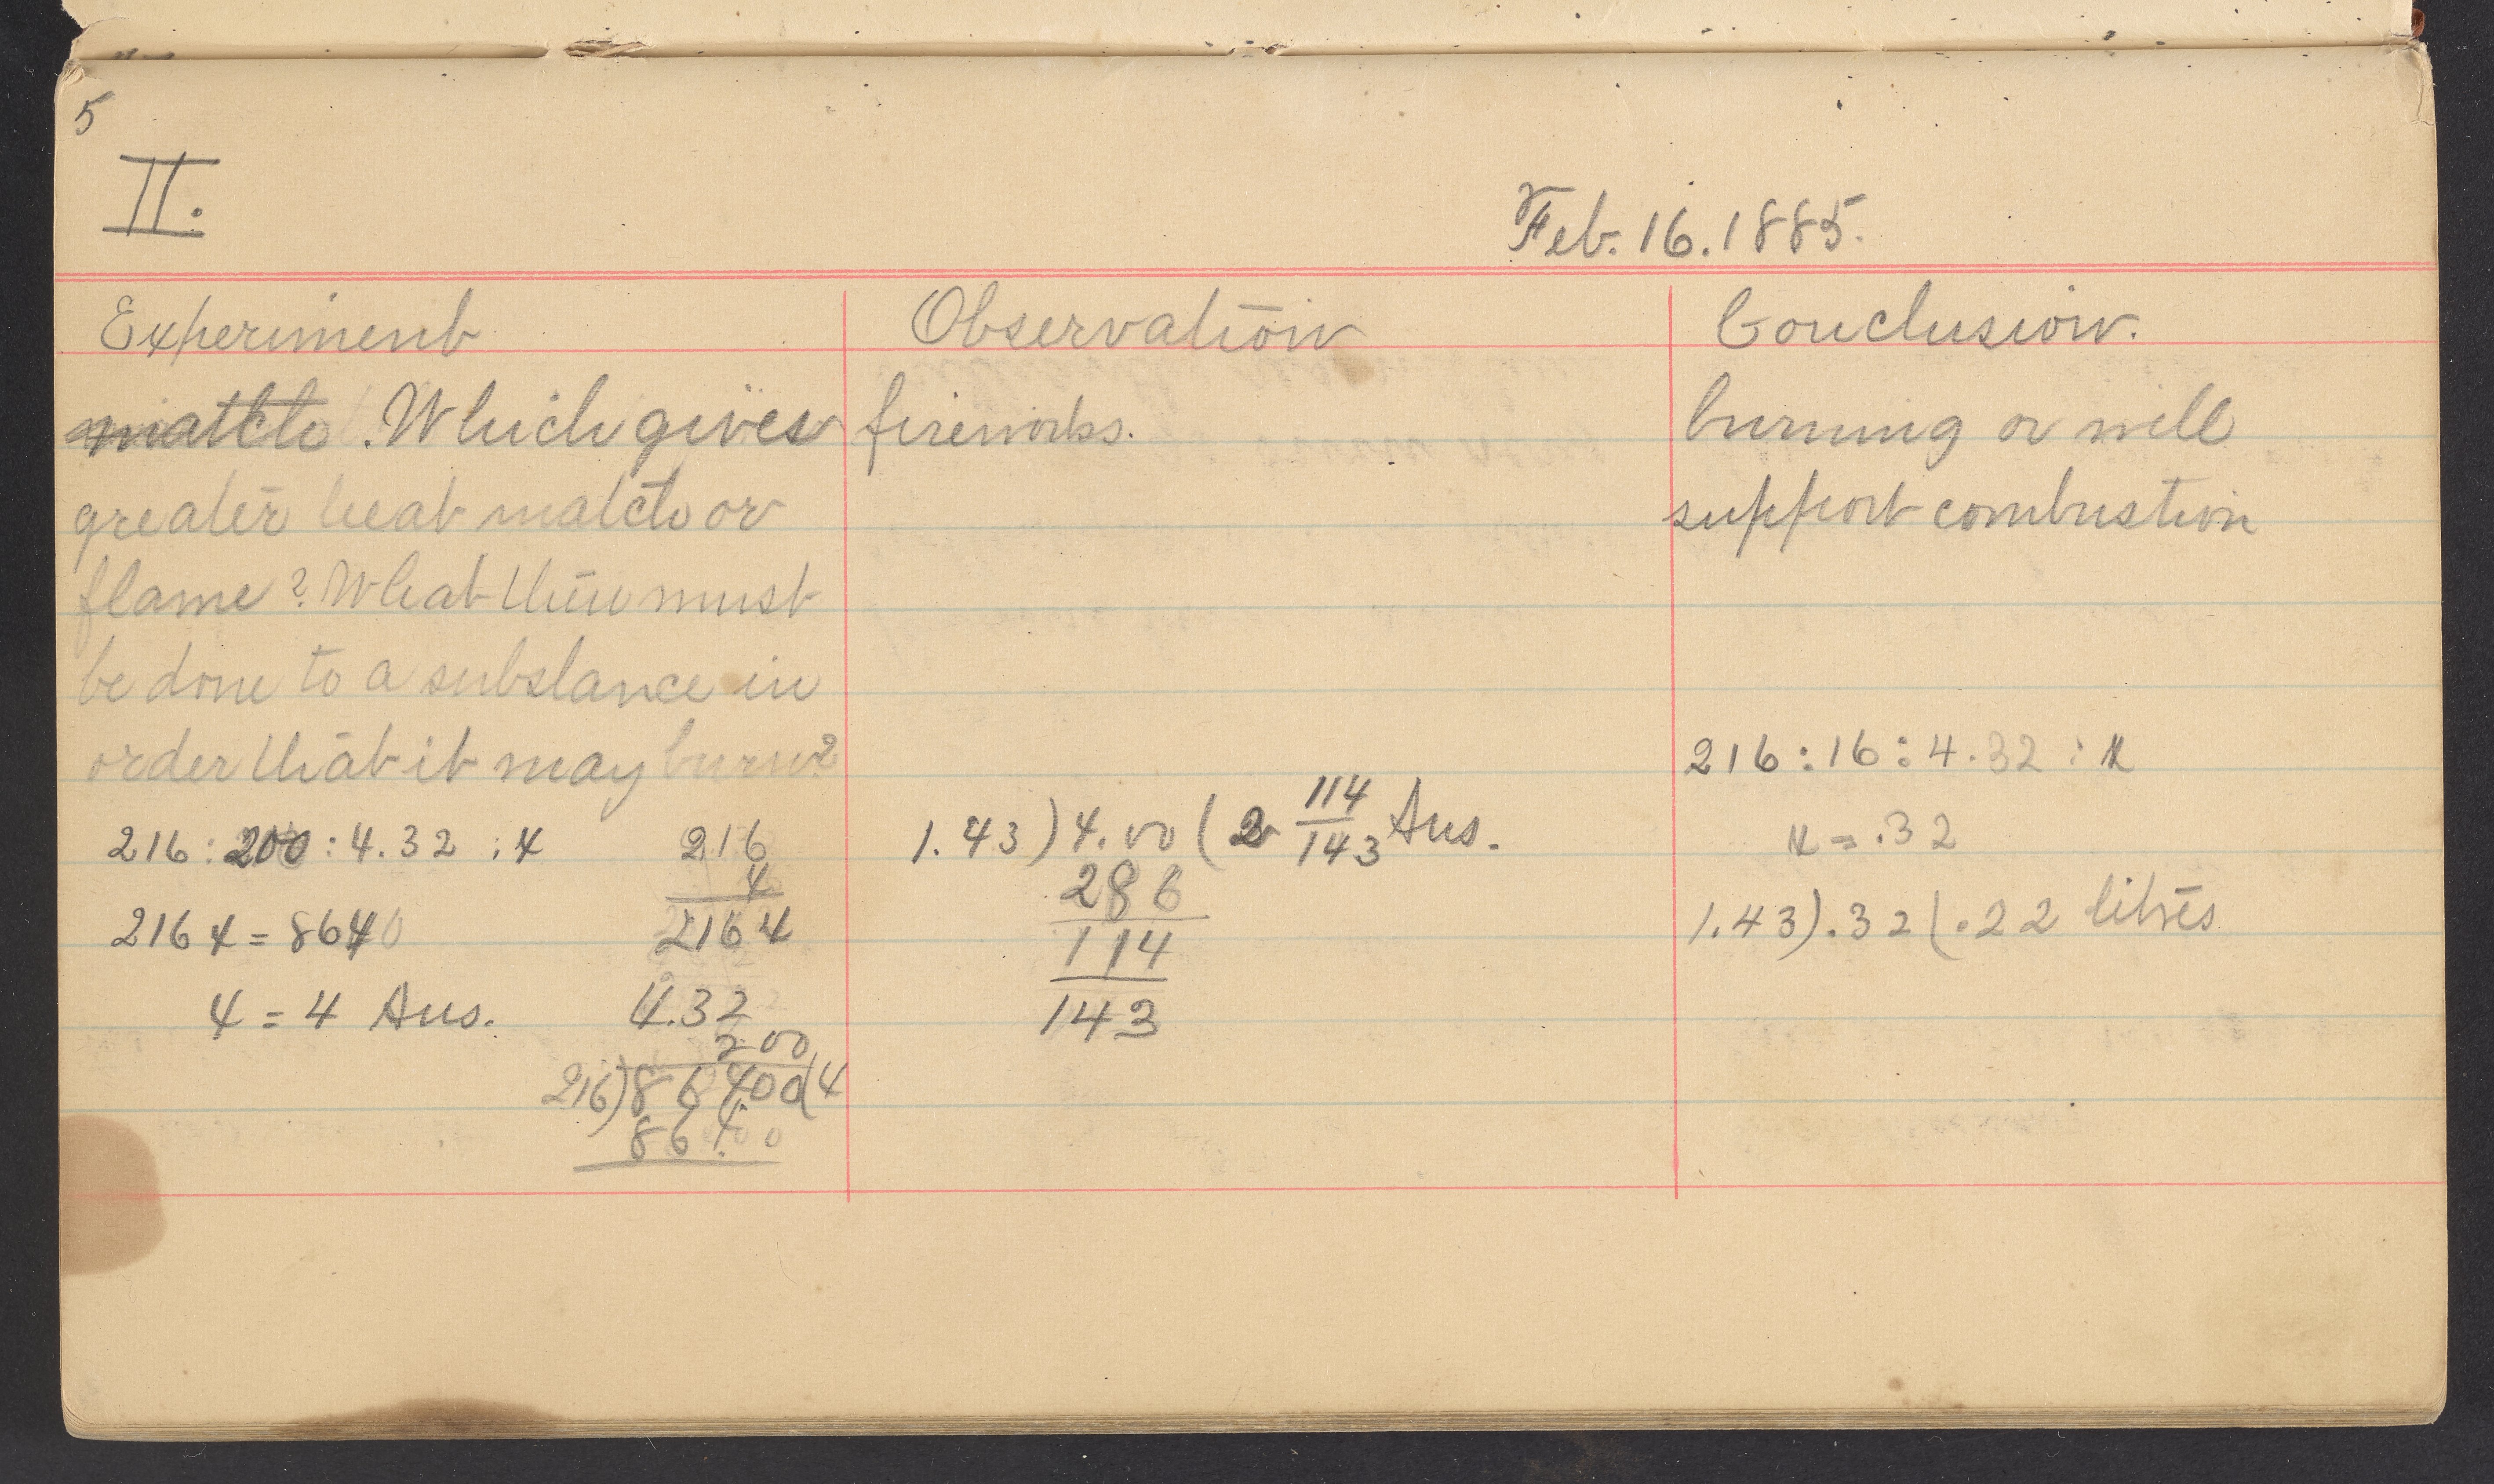 5
II.
Feb. 16. 1885.
Experiment
match. Which gives
greater heat match or
flame? What then must
be done to a substance in
order that it may burn?
216 : 200 : 4.32 : x
216 x = 8640
x = 4 Ans.
216
4
2164
4.32
200
216)86400(4
86400
Observation
fireworks.
1.43)4.00(2 114/143 Ans.
286
114
143
Conclusion.
burning or will
support combustion
216 : 16 : 4.32 : x
x = .32
1.43).32(.22 litres